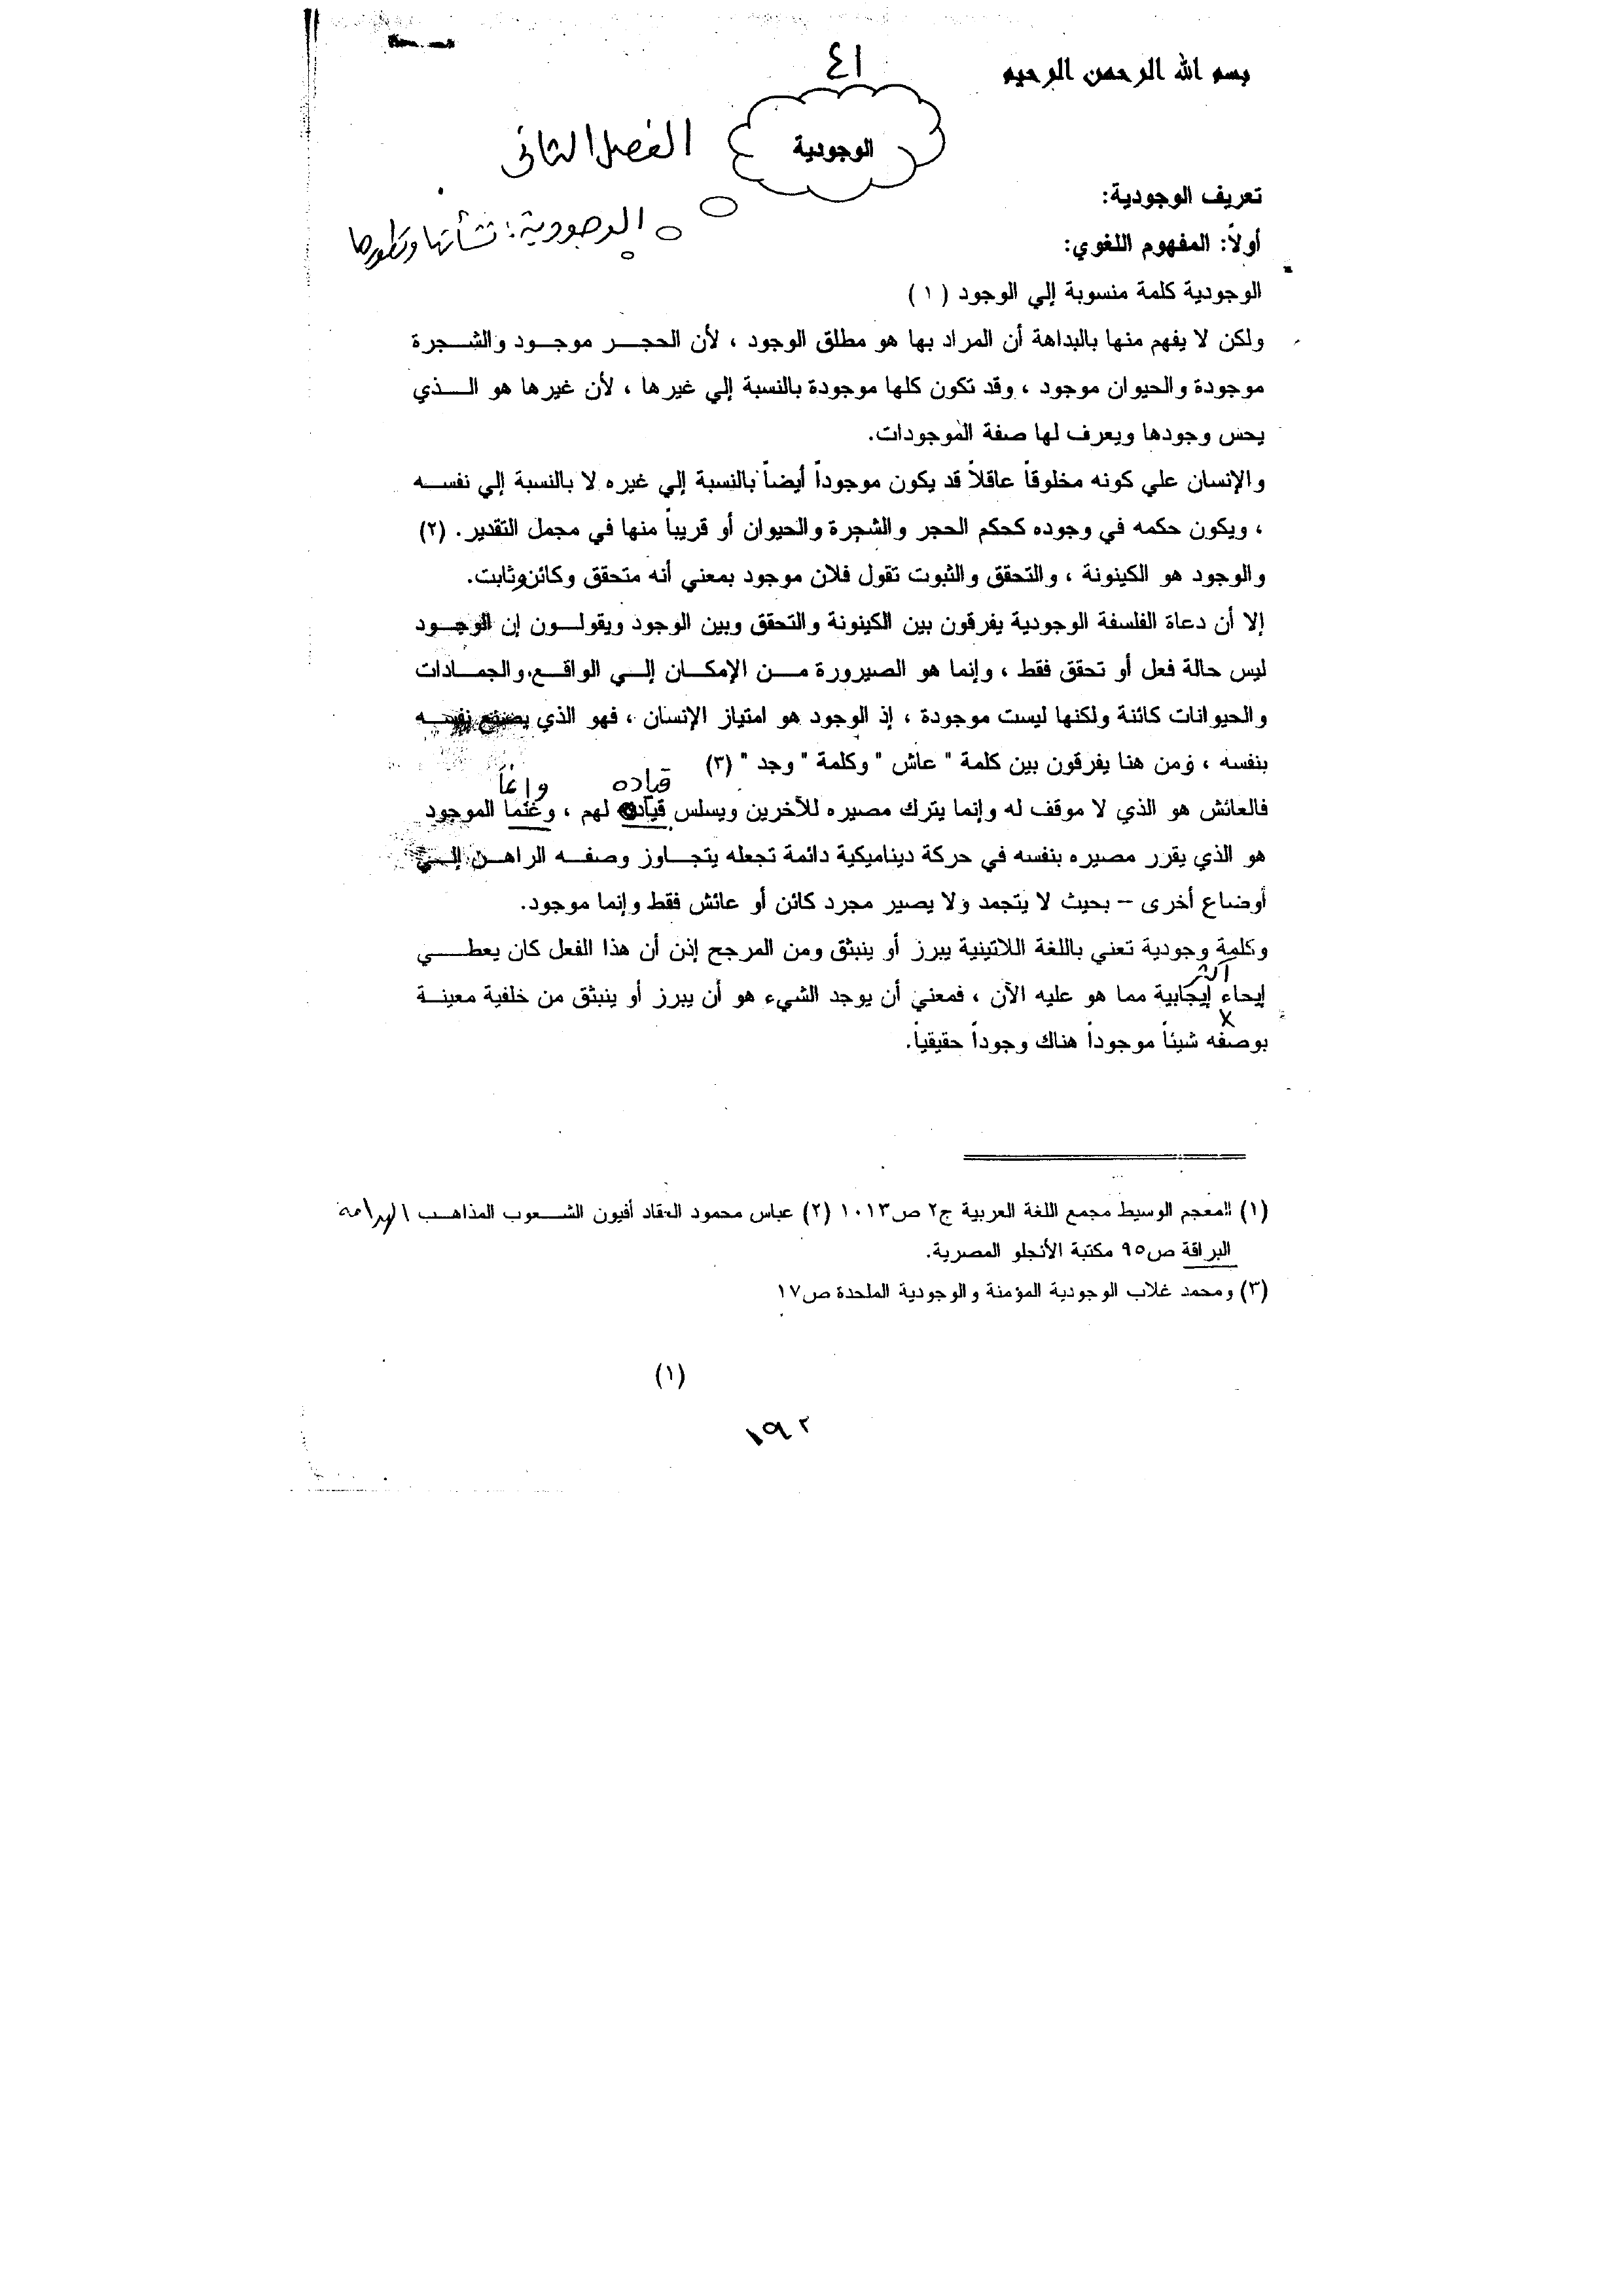 ٤١
بسم الله الرحمن الرحيم
الوجودية
الفصل الثاني
الوجودية: نشأتها وتطورها
تعريف الوجودية:
أولاً: المفهوم اللغوي:
الوجودية كلمة منسوبة إلي الوجود ( ١ )
ولكن لا يفهم منها بالبداهة أن المراد بها هو مطلق الوجود ، لأن الحجر موجود والشجرة
موجودة والحيوان موجود ، وقد تكون كلها موجودة بالنسبة إلي غيرها ، لأن غيرها هو الذي
يحس وجودها ويعرف لها صفة الموجودات.
والإنسان علي كونه مخلوقاً عاقلاً قد يكون موجوداً أيضاً بالنسبة إلي غيره لا بالنسبة إلي نفسه
، ويكون حكمه في وجوده كحكم الحجر والشجرة والحيوان أو قريباً منها في مجمل التقدير. (٢)
والوجود هو الكينونة ، والتحقق والثبوت تقول فلان موجود بمعني أنه متحقق وكائن وثابت.
إلا أن دعاة الفلسفة الوجودية يفرقون بين الكينونة والتحقق وبين الوجود ويقولون إن الوجود
ليس حالة فعل أو تحقق فقط ، وإنما هو الصيرورة من الإمكان إلي الواقع، والجمادات
والحيوانات كائنة ولكنها ليست موجودة ، إذ الوجود هو امتياز الإنسان ، فهو الذي يصنع نفسه
بنفسه ، ومن هنا يفرقون بين كلمة " عاش " وكلمة " وجد " (٣)
قياده وإنما
فالعائش هو الذي لا موقف له وإنما يترك مصيره للآخرين ويسلس قياده لهم ، وغنما الموجود
هو الذي يقرر مصيره بنفسه في حركة ديناميكية دائمة تجعله يتجاوز وصفه الراهن إلي
أوضاع أخرى – بحيث لا يتجمد ولا يصير مجرد كائن أو عائش فقط وإنما موجود.
وكلمة وجودية تعني باللغة اللاتينية يبرز أو ينبثق ومن المرجح إذن أن هذا الفعل كان يعطي
أكثر
إيحاء إيجابية مما هو عليه الآن ، فمعني أن يوجد الشيء هو أن يبرز أو ينبثق من خلفية معينة
بوصفه شيئاً موجوداً هناك وجوداً حقيقياً.
(١) المعجم الوسيط مجمع اللغة العربية ج٢ ص١٠١٣ (٢) عباس محمود العقاد أفيون الشعوب المذاهب الهدامة
البراقة ص٩٥ مكتبة الأنجلو المصرية.
(٣) ومحمد غلاب الوجودية المؤمنة والوجودية الملحدة ص١٧
(١)
١٩٢